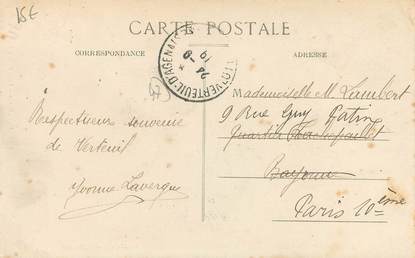 15E
CARTE POSTALE
CORRESPONDANCE
ADRESSE
VERTEUIL-D'AGENAIS
24 -9
19
Mademoiselle M. Lambert
9 Rue Guy Patin
Quartier
Bayonne
Paris 10ème
Respectueux souvenir
de Verteuil
Yvonne Lavergne